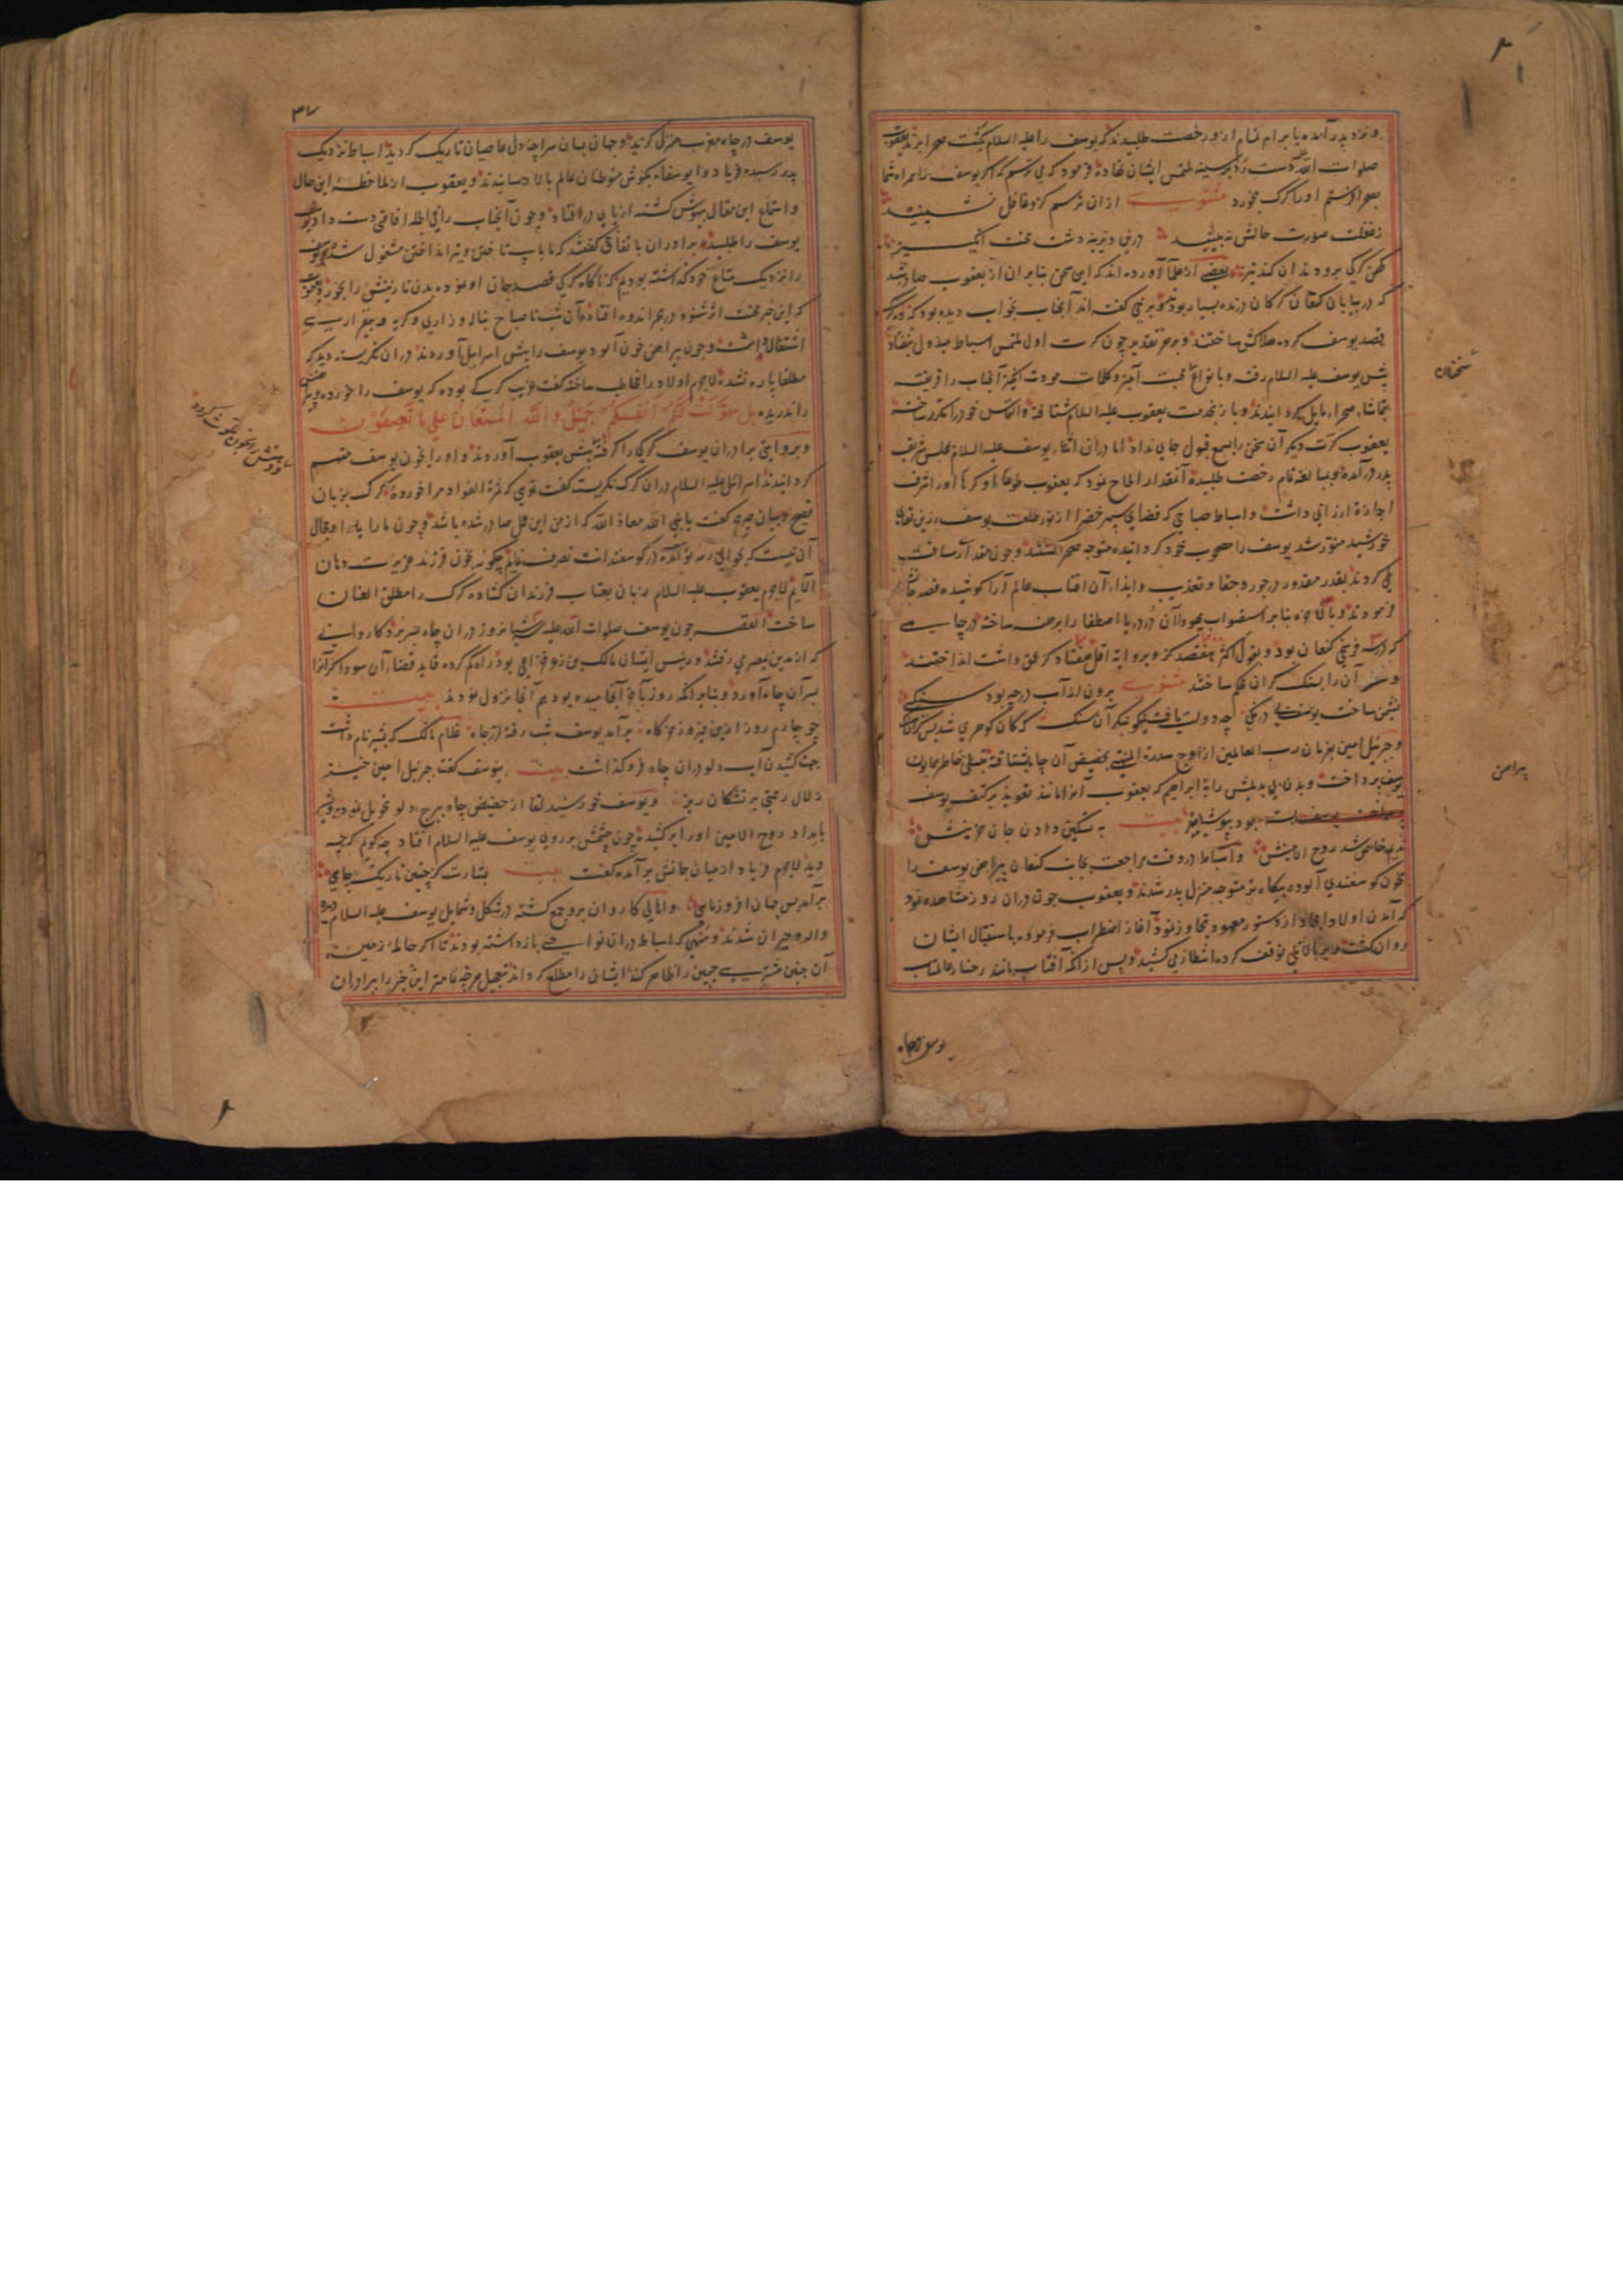 و نزد پدر آمده بابرام تمام ازو رخصت طلبیدند که یوسف را علیه السلام بگشت صحرا برند یعقوب
صلوات الله دست رد بر سینه ملتمس ایشان نهاده فرمود که می ترسم که اگر یوسف را همراه شما
بصحرا فرستم او را گرگ بخورد مثنوی ازان ترسم کزو غافل نشینید
ز غفلت صورت حالش نبینید درین دیرینه دشت محنت انگیز
کهن گرگی برو دندان کند تیز بعضی از علما آورده اند که این سخن بنابران از یعقوب صادر شد
که در بیابان کنعان گرگان درنده بسیار بودند و برخی گفته اند آنجناب بخواب دیده بود که ده گرگ
قصد یوسف کرده هلاکش ساختند و بر هر تقدیر چون کرت اول ملتمس اسباط مبذول نیفتاد
پیش یوسف علیه السلام رفته و بانواع محبت آمیز و کلمات مودت انگیز آنجناب را فریفته
بتماشاء صحرا مایل گردانیدند و باز بخدمت یعقوب علیه السلام شتافته و التماس خود را مکرر ساخته
یعقوب کرت دیگر آن سخن را بسمع قبول جای نداد اما دران اثنا یوسف علیه السلام بمجلس شریف
پدر درآمده و بمبالغه تمام رخصت طلبیده آنمقدار الحاح نمود که یعقوب طوعا او کرها او را شرف
اجازة ارزانی داشت و اسباط صباحی که فضای سپهر خضرا از نور طلعت یوسف زرین نقاب
خورشید منور شد یوسف را مصحوب خود گردانیده متوجه صحرا گشتند و چون مقدار مسافت
طی کردند بقدر مقدور در جور و جفا و تعذیب و ایذاء آن افتاب عالم آرا کوشیده قصد جانش
فرمودند و بالاخره بنابر استصواب یهودا آن در دریا اصطفا را برهنه ساخته در چاهی
که در سه فرسخی کنعان بود و بقول اکثر هفتصد گز و بروایة اقل هفتاد گز عمق داشت انداختند
و سر آن را بسنک گران محکم ساختند مثنوی برون از آب در چه بود سنگی
نشیمن ساخت یوسف بی درنگی چه دولت یافت بنگر آن سنگ که کان گوهری شد بس گران سنگ
و جبرئیل امین بفرمان رب العالمین از اوج سدرة المنتهی بحضیض آن چاه شتافته بتسلی خاطر همایون
یوسف پرداخت و بدن بی بدیلش را به ابراهیم که یعقوب آنرا مانند تعویذ بر کتف یوسف
بود بپوشانید بیت به تسکین دادن جان حزینش
ندیم خاص شد روح الامینش و اسباط در وقت مراجعت بجانب کنعان پیراهن یوسف را
بخون گوسفندی آلوده بیگاه تر متوجه منزل پدر شدند و یعقوب چون دران روز مشاهده نمود
که آمدن اولاد امجاد از دستور معهود تجاوز نمود آغاز اضطراب فرموده باستقبال ایشان
روان گشت و بر بالا تلی توقف کرده انتظار می کشید و پس از آنکه آفتاب مانند رخسار عالمتاب
سخنان
پیراهن
یوسف در چاه
۳۷
یوسف در چاه مغرب منزل گزید و جهان بسان سراچه دل عاصیان تاریک گردید اسباط نزدیک
پدر رسیده فریاد وا یوسفاه بگوش متوطنان عالم بالا رسانیدند و یعقوب از ملاحظه این حال
و استماع این مقال بیهوش گشته از پای در افتاد و چون آنجناب را فی الجمله افاقتی دست داد
یوسف را طلبیده برادران باتفاق گفتند که یا باب تا خضن و تیر انداختن مشغول شدیم و یوسف
را نزدیک متاع خود گذاشته بودیم که ناگاه گرگی قصد جان او نموده بدن نازنینش را بخورد و یعقوب
که این خبر محنت اثر شنود در بحر اندوه افتاده آن شب تا صباح بناله و زاری و گریه و بیقراری
اشتغال داشت و چون پیراهن خون آلود یوسف را پیش اسرائیل آوردند دران نگریسته دید که
مطلقا پاره نشده لاجرم اولاد را مخاطب ساخته گفت غریب گرگی بوده که یوسف را خورده و پیراهنش
را ندریده بل سولت لکم انفسکم جمیل والله المستعان علی ما تصفون
و بروایتی برادران یوسف گرگی را گرفته پیش یعقوب آوردند و او را بخون یوسف متهم
گردانیدند اسرائیل علیه السلام دران گرگ نگریسته گفت توی که ثمرة الفواد مرا خورده گرگ بزبان
فصیح و بیان صریح گفت یا نبی الله معاذ الله که از من این عمل صادر شده باشد و چون ما را یارا و مجال
آن نیست که بحوالی رمه تو آمده در گوسفندانت تصرف نمایم چگونه بخون فرزند عزیزت دهان
آلایم لاجرم یعقوب علیه السلام زبان بعتاب فرزندان گشاده گرگ را مطلق العنان
ساخت القصه چون یوسف صلوات الله علیه سه شبانروز دران چاه بسر برد کاروانی
که از مدین بمصر می رفتند و رئیس ایشان مالک بن زعر خزاعی بود راه گم کرده قاید قضاء آن سوداگر آنرا
بسر آن چاه آورد و بنابر آنکه روز بآخر آنجا رسیده بودند هم آنجا نزول نمودند بیت
چو چارم روز ازین فیروزه گاه بر آمد یوسف شب رفته از چاه غلام مالک که بشیر نام داشت
بجهت کشیدن آب دلو دران چاه فرو گذاشت بیت بیوسف گفت جبرئیل امین خیز
زلال رحمتی بر تشنگان ریز و یوسف خورشید لقا از حضیض چاه ببرج دلو تحویل نموده و بشیر
بامداد روح الامین او را برکشید و چون چشمش بر روی یوسف علیه السلام افتاد چه گویم که چه
دید لاجرم فریاد از میان جانش بر آمده گفت بیت بشارت کز چنین تاریک چاهی
برآمد بس جهان افروز ماهی و اهالی کاروان بروجمع گشته در شکل و شمایل یوسف علیه السلام
واله و حیران شدند و منهی که اسباط دران نواحی بازداشته بودند تا اگر حاملهٔ زمین
آن جنین مشتری جبین را ظاهر کند ایشان را مطلع گرداند بتعجیل هر چه تمامتر این خبر را ببرادران